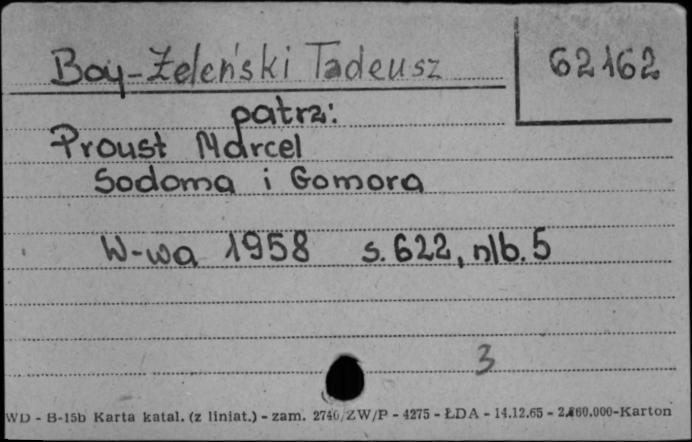 Boy-Żeleński Tadeusz
62162
patrz:
Proust Marcel
Sodoma i Gomora
W-wa 1958 s. 622, nlb. 5
3
WD - B-15b Karta katal. (z liniat.) - zam. 2746/ZW/P - 4275 - ŁDA - 14.12.65 - Karton